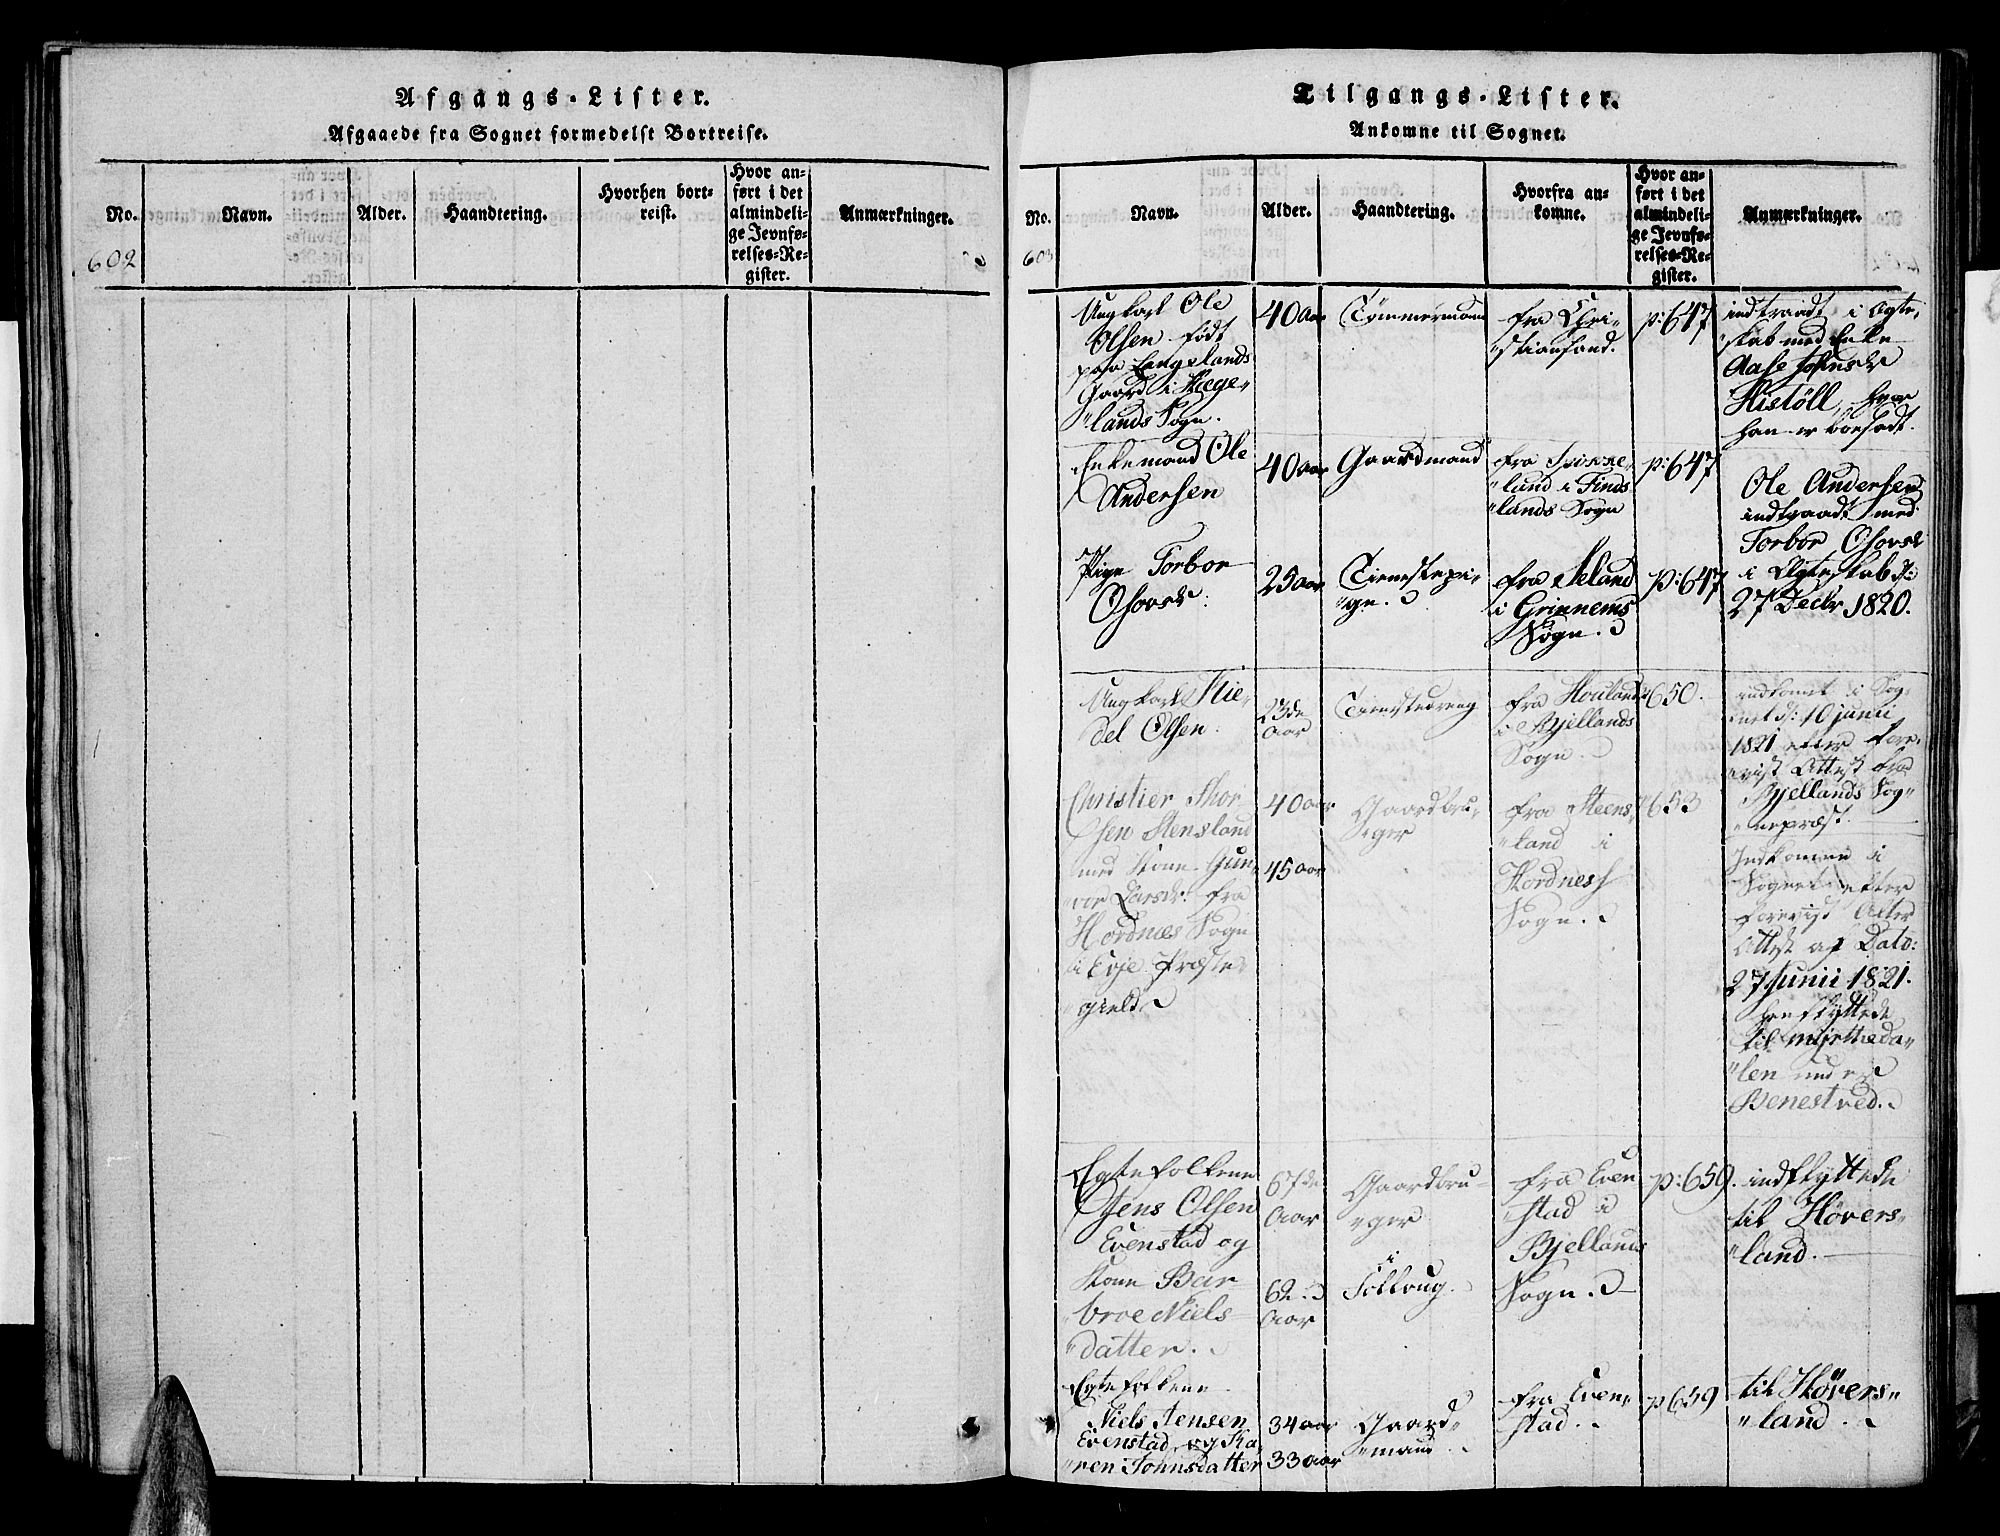 Afgangs-Lister.
Afgaaede fra Sognet formedelst Bortreise.
No.
Navn.
Alder.
Haandtering.
Hvorhen bort-
reist.
Hvor an-
ført i det
almindeli-
ge Jevnfø-
relses-Re-
gister.
Anmærkninger.
602
Tilgangs-Lister.
Ankomne til Sognet.
No.
Navn.
Alder.
Haandtering.
Hvorfra an-
komne.
Hvor an-
ført i det
almindeli-
ge Jevnfø-
relses-Re-
gister.
Anmærkninger.
603
Ungkarl Ole
Olsen født
paa Langelands
Gaard i Hæge-
"lands Sogn.
40 Aar
Tømmermand
fra Chri-
"stiansand.
p: 647
indtraadt i Ægte-
"skab med Enke
Aase
Histöll, hvor
han er boesadt.
Enkemand Ole
Andersen
40 aar
Gaardmand
fra
"land i Finds
"lands Sogn
p: 647
Ole Andersen
indtraadt med
Torbor
i Ægteskab d:
27 Decbr 1820.
Pige Torbor
25 aar
Tienestepi-
"ge.
fra
i Grinnems
Sogn.
p: 647
Ungkarl Kie-
del Olsen.
23de
Aar
Tienestedreng
fra Houland
i Bjellands
Sogn.
650.
indkomt i Sog-
net d: 10 junii
1821 efter fore-
"vist Attest fra
Bjellands Sog-
"nepræst.
Christier Thor
sen Stensland
med Kone Gun-
"vor Larsdr: fra
Hordnes Sogn
i Evje Præste-
"gield.
40 aar
45 aar
Gaardbru-
"ger
fra Steens-
"land i
Hordness
Sogn.
653
Indkomne i
Sognet efter
forevist
Attest af Dato:
27 Junii 1821.
henflyttede
til myrtteda-
"len under
Benestved.
Egtefolkene
Jens Olsen
Evenstad og
Kone Bar
"broe Niels
"datter.
67de
Aar
62
Aar
Gaardbru-
"ger
i
Follaug.
fra Even
"stad i
Bjellands
Sogn.
p: 659.
indflyttede
til Høvers-
"land.
Egtefolkene
Niels Jensen
Evenstad, og Ka-
"ren Johnsdatter
34 aar
33 aar
Gaard-
"mand.
fra Even-
stad.
p 659
til Høvers-
"land.